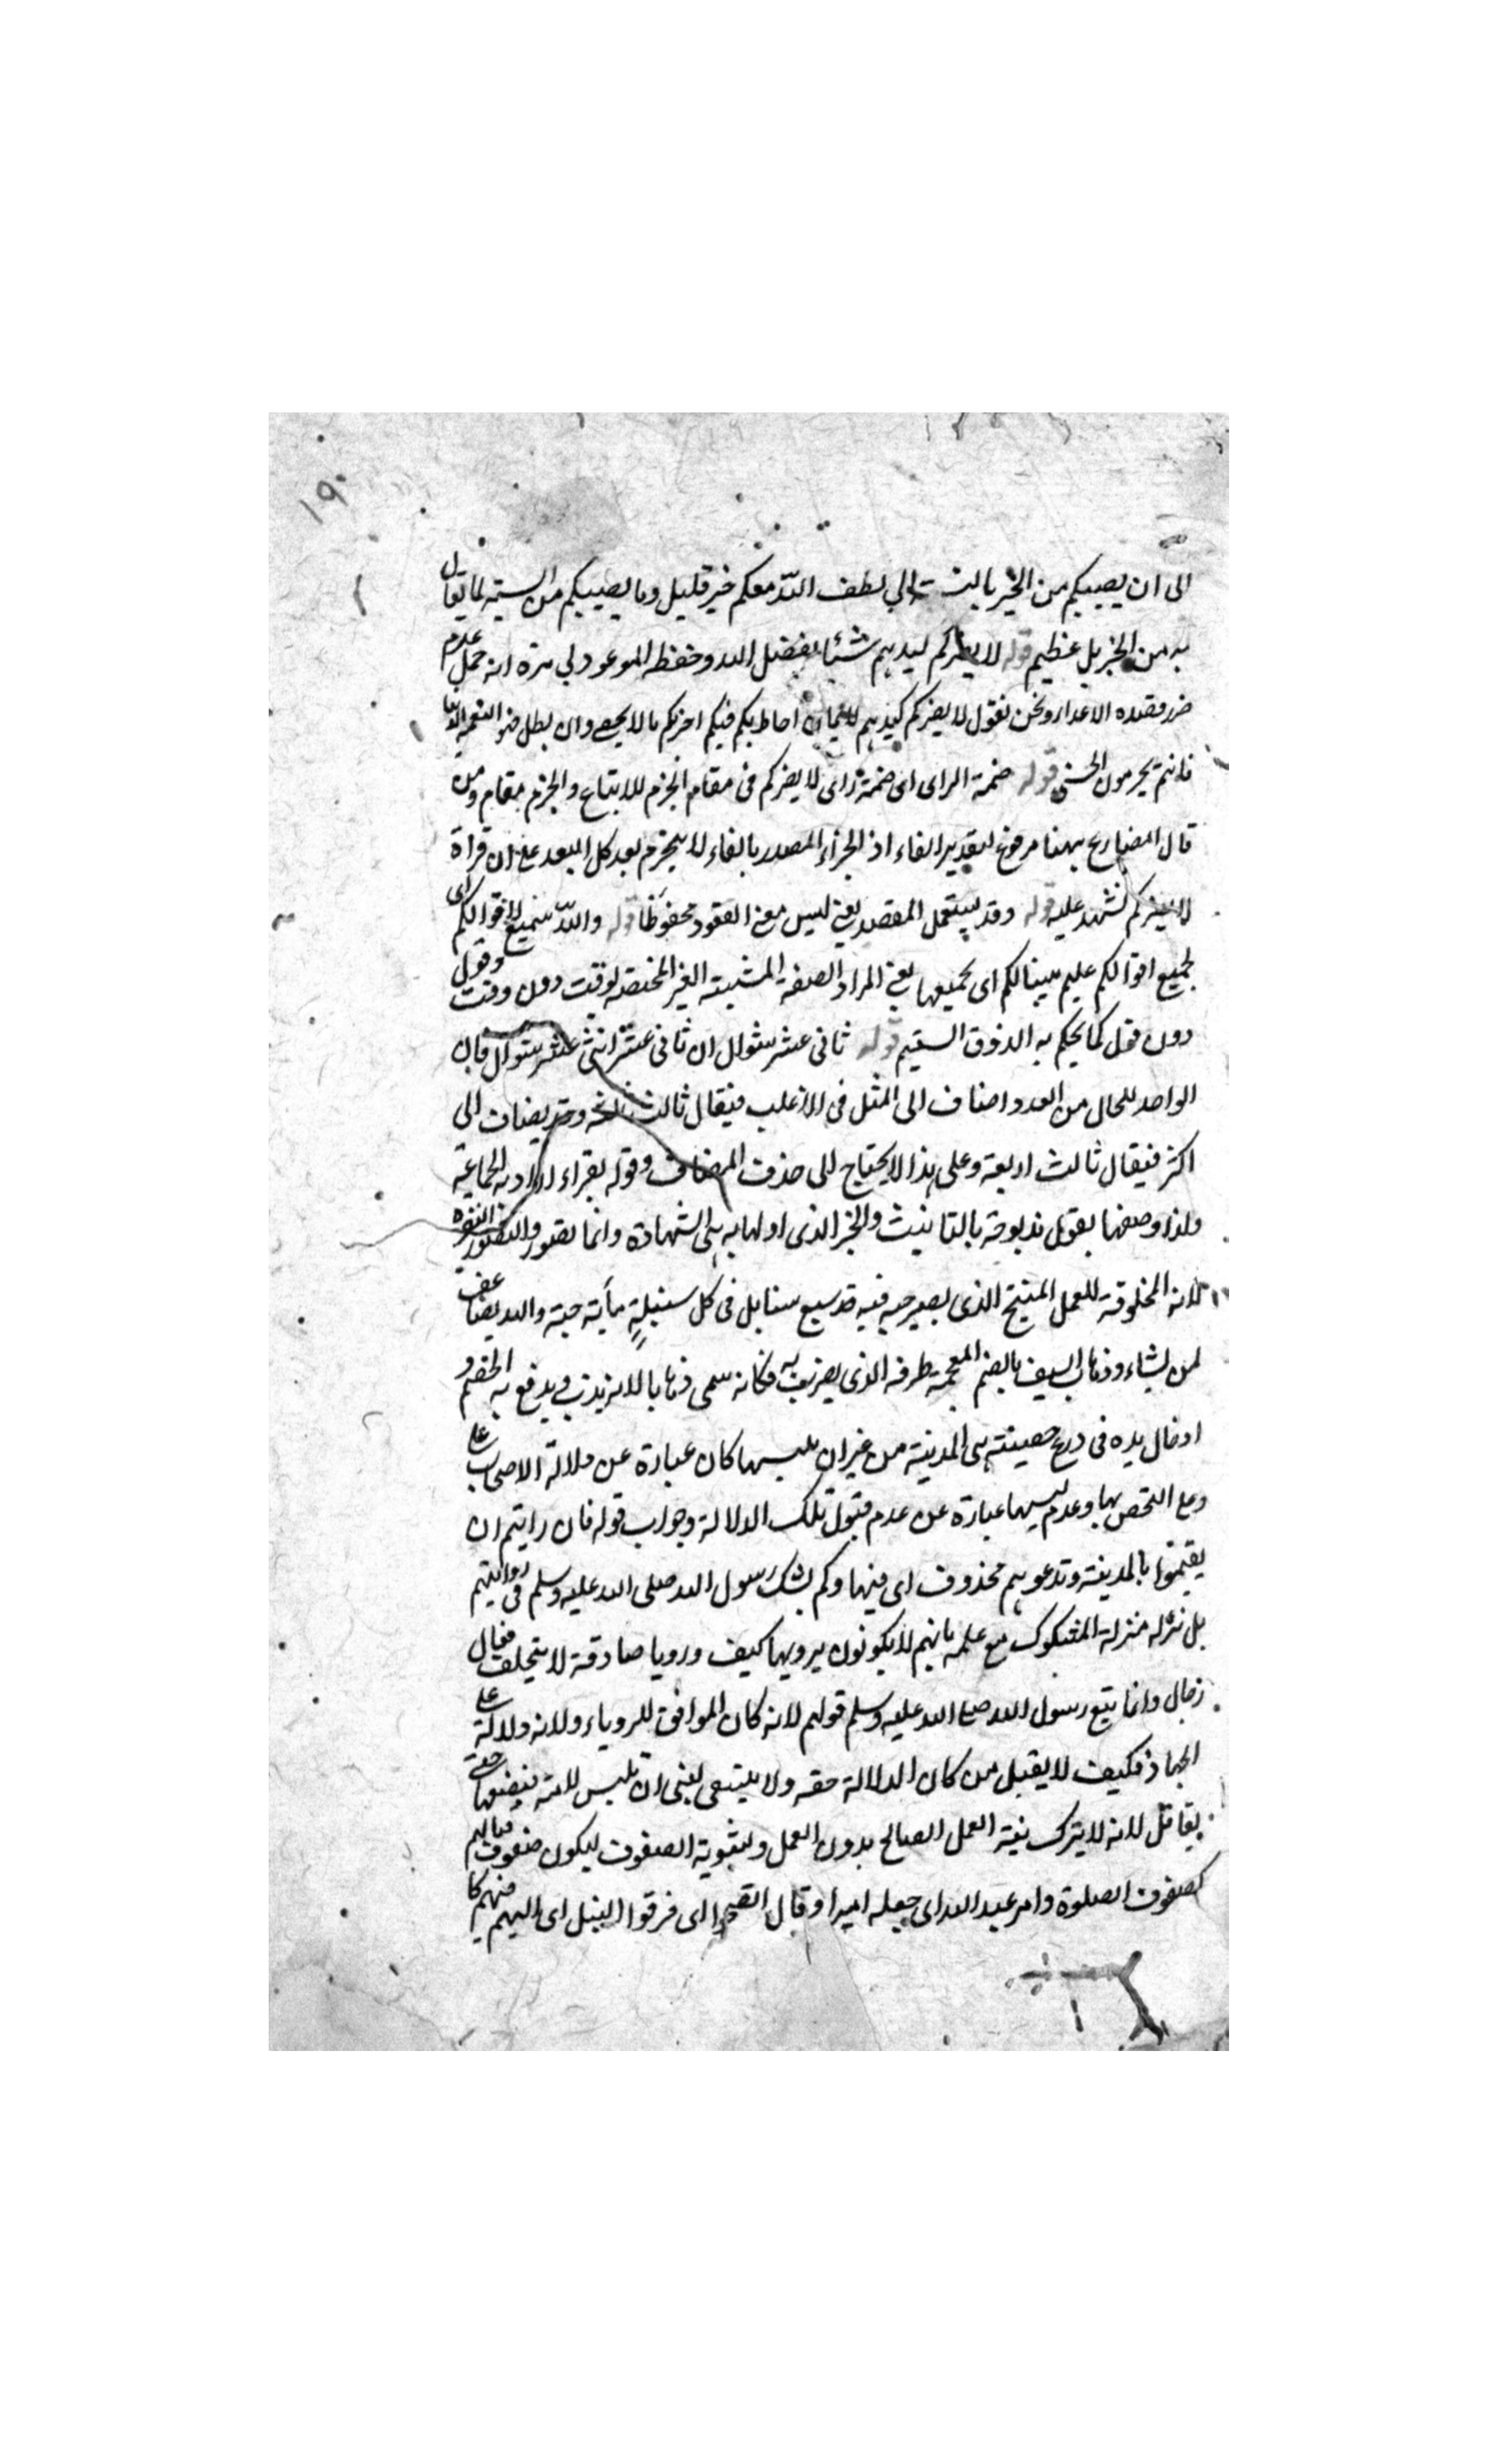 ١٩٠
الى ان يصيبكم من الخير بالنسبة الى لطف الله معكم خير قليل وما يصيبكم من السيئة لما يقابل
به من الجزيل عظيم قوله لا يضركم كيدهم شيئا بفضل الله وحفظه الموعود لي مرة انه حمل عدم
ضرر قصده الاعداء ونحن نقول لا يضركم كيدهم احاط بكم فيكم اجركم مالا يحصى وان بطل النعمة الدنيا
فانتم تحرمون الحسنى قوله ضمة الراى اى ضمة راى لا يضركم في مقام الجزم للاتباع والجزم بمقام ومن
قال المضارع ههنا مرفوع بتقدير الفاء اذ الجزاء المصدر بالفاء لا ينجزم بعد كل البعد على ان قراءة
لا يضركم تشهد عليه قوله وقد يستعمل المقصد يعني ليس معنى القعود محفوظا قوله والله سميع لاقوالكم اى
لجميع اقوالكم عليم بنياتكم اى بجميعها يعني المراد الصفة المشبهة الغير المختصة بوقت دون وقت وقول
دون قول كما يحكم به الذوق السليم قوله ثاني عشر شوال ان ثاني عشر اثني عشر شوال فان
الواحد للحال من العدد اضاف الى المثل في الاغلب فيقال ثالث ثلثة وقد يضاف الى
اكثر فيقال ثالث اربعة وعلى هذا لا يحتاج الى حذف المضاف وقوله بقراء اراد به الجماعة
ولذا وصفها بقوله مذبوحة بالتانيث والخير الذى اولها به هى الشهادة وانما تصور البقرة
لانه المخلوقة للعمل المنتج الذى يصير حبه فيه قد سبع سنابل في كل سنبلة مأية حبة والله يضاعف
لمن يشاء وذباب السيف بالضم المعجمة طرفه الذى يضرب به فكانه سمى ذبابا لانه يذب ويدفع به الخصم و
ادخال يده في درع حصينة هى المدينة من غير ان يلبسها كان عبارة عن دلالة الاصحاب على
وعلى التحصن بها وعدم لبسها عبارة عن عدم قبول تلك الدلالة وجواب قوله فان رايتم ان
يقيموا بالمدينة وتدعوهم محذوف اى فيها وكم يشك رسول الله صلى الله عليه وسلم في روايتهم
بل نزله منزلة المشكوك مع علمه بانهم لا يكونون يرويها كيف ورويا صادقة لا يتخلف فقال
رجال وانما يتبع رسول الله صلى الله عليه وسلم قولهم لانه كان الموافق للروياء ولانه دلالة على
الجهاد فكيف لا يقبل من كان الدلالة حقه ولا ينبغى لنبى ان يلبس لامته فيضعها حتى
يقاتل لانه لا يترك نية العمل الصالح بدون العمل وتسوية الصفوف ليكون صفوف قتالهم
كصفوف الصلوة وامر عبد الله اى جعله اميرا وقال انضحوا اى فرقوا النبل اى اليهم منهم كا